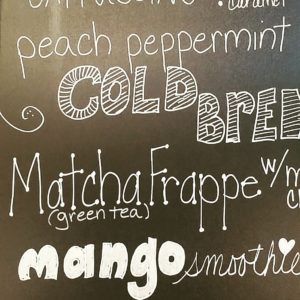 caramel
peach peppermint
COLD
Matcha Frappe w/
(green tea)
mango smoothie